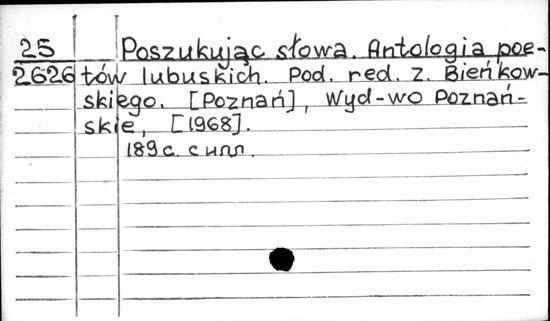 25 Poszukując słowa. Antologia poe-
2626 tów lubuskich. Pod. red. z. Bieńkow-
skiego. [Poznań], Wyd-wo Poznań-
skie, [1968].
189 с. с илл.